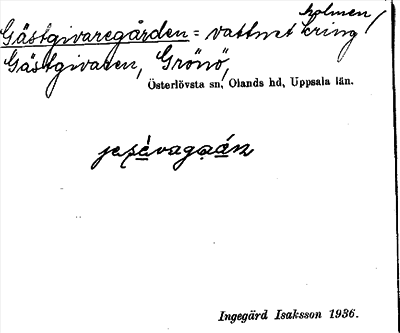 Gästgivaregården = vattnet kring holmen/
Gästgivaren, Grönö,
Österlövsta sn, Olands hd, Uppsala län.
Ingegärd Isaksson 1936.